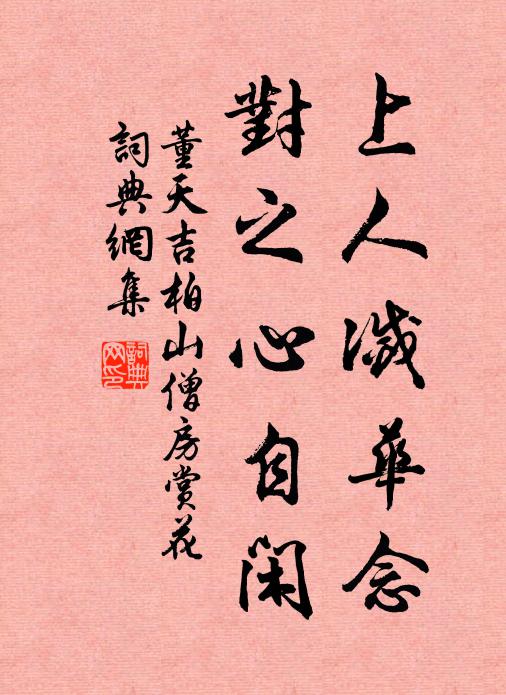 上人滅華念
對之心自閑
董天吉柏山僧房赏花
詞典網集
詞典網印